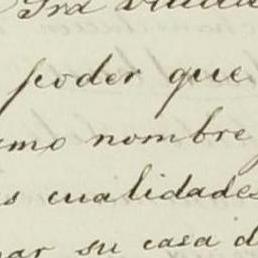 Sra viuda
poder que
smo nombre
s cualidades
ar su casa d